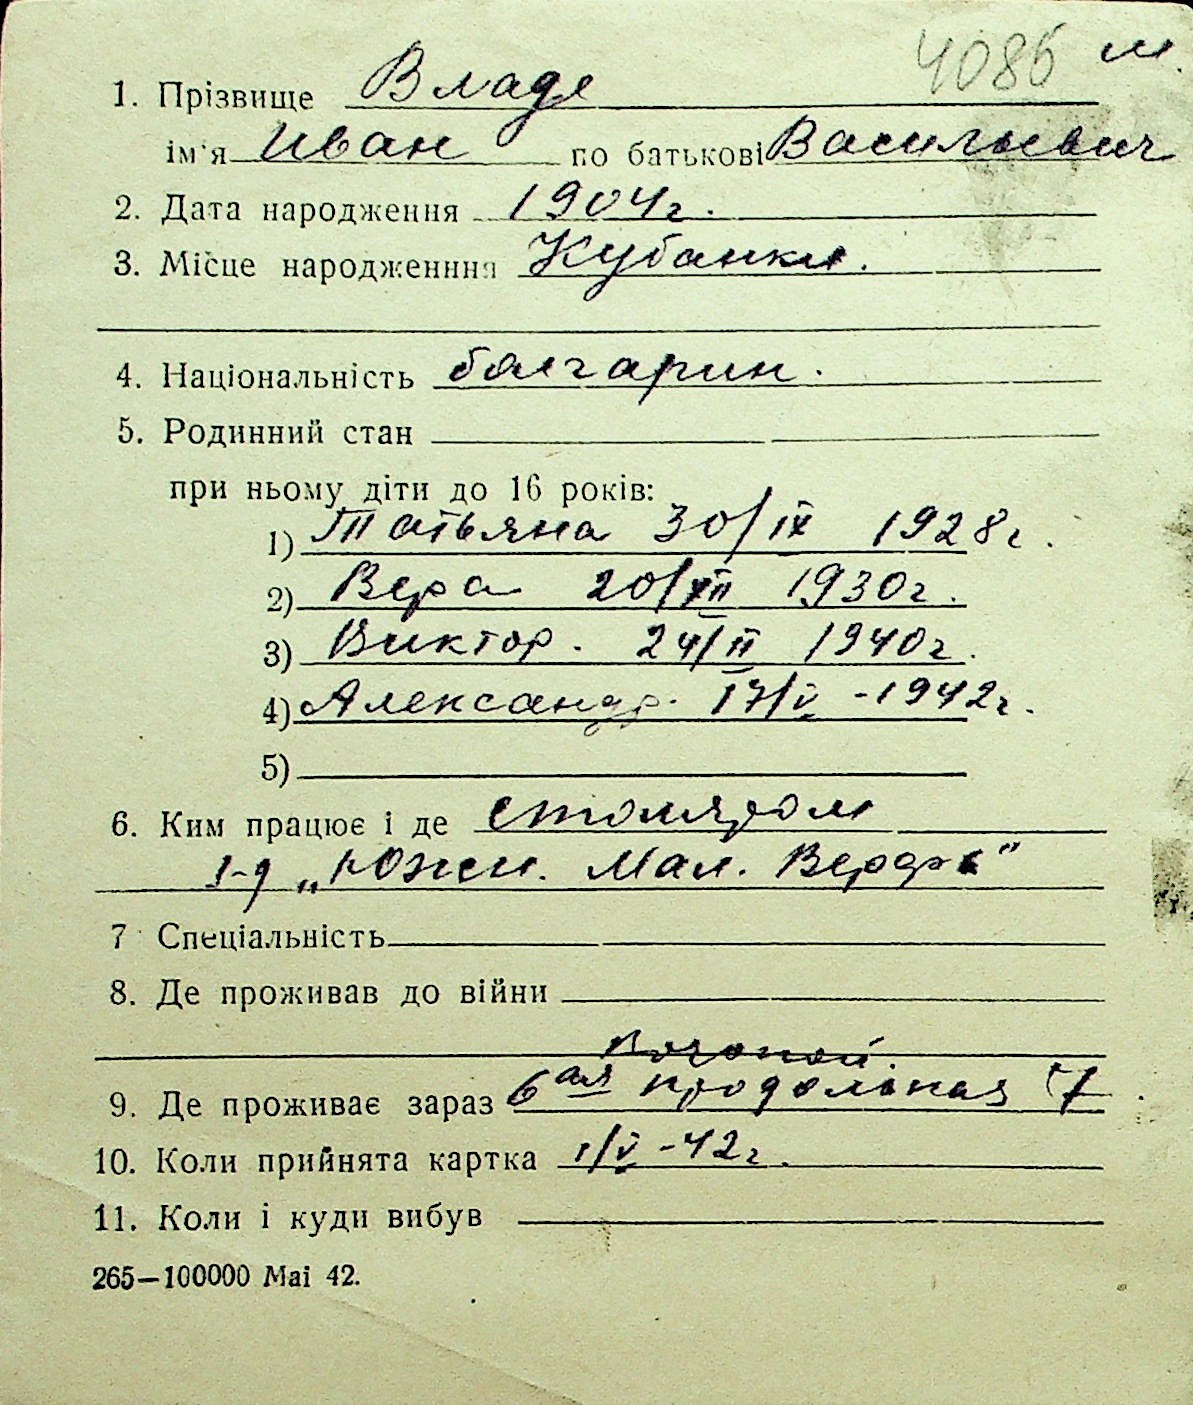 4086 м.
1. Прізвище Владе
ім'я Иван по батькові Васильевич
2. Дата народження 1904г.
3. Місце народженння Кубанка.
4. Національність болгарин.
5. Родинний стан
при ньому діти до 16 років:
1) Татьяна 30/IX 1928г.
2) Вера 20/XII 1930г.
3) Виктор. 24/II 1940г.
4) Александр. 17/V - 1942г.
5)
6. Ким працює і де столяром
„Южн. Мал. Верфь"
7 Спеціальність
8. Де проживав до війни
9. Де проживає зараз 6ая продольная 7.
10. Коли прийнята картка 1/V - 42г.
11. Коли і куди вибув
265—100000 Mai 42.